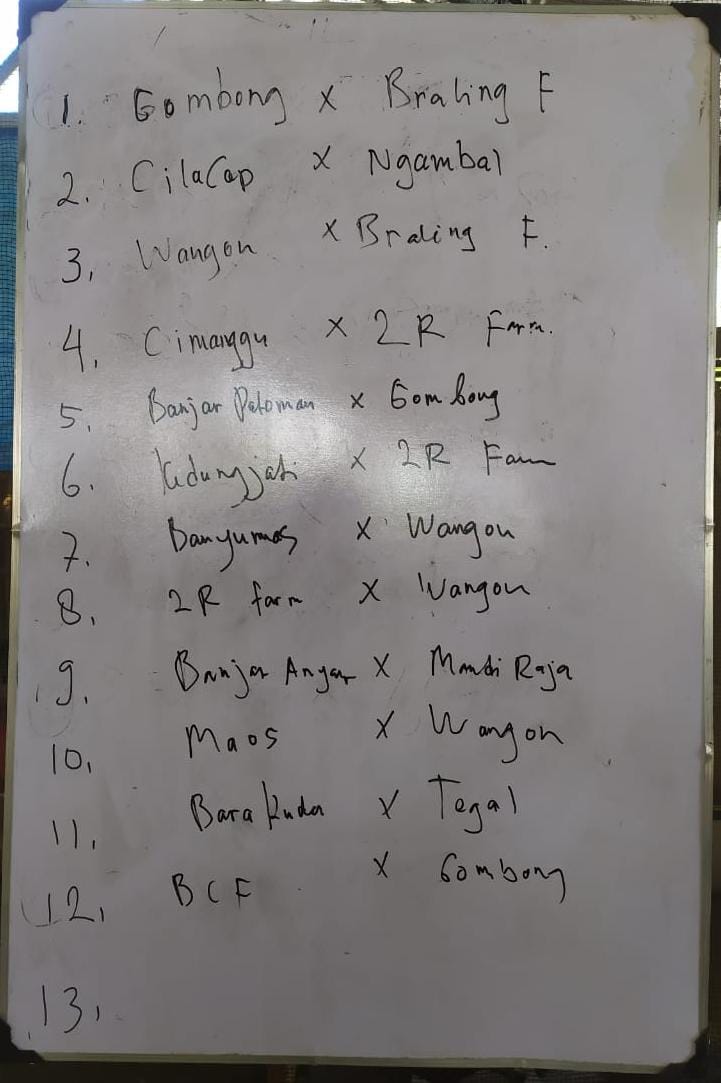 1. Gombong x Braling F
2. CilaCap x Ngambal
3, Wangon x Braling F.
4, Cimanggu x 2R Farm.
5, Banjar Patoman x Gombong
6. Kedungjati x 2R Farm
7. Banyumas x Wangon
8, 2R farm x Wangon
9. Banjar Anyar x Mandi Raja
10, Maos x Wangon
11, Bara kuda x Tegal
12, BCF x Gombong
13,